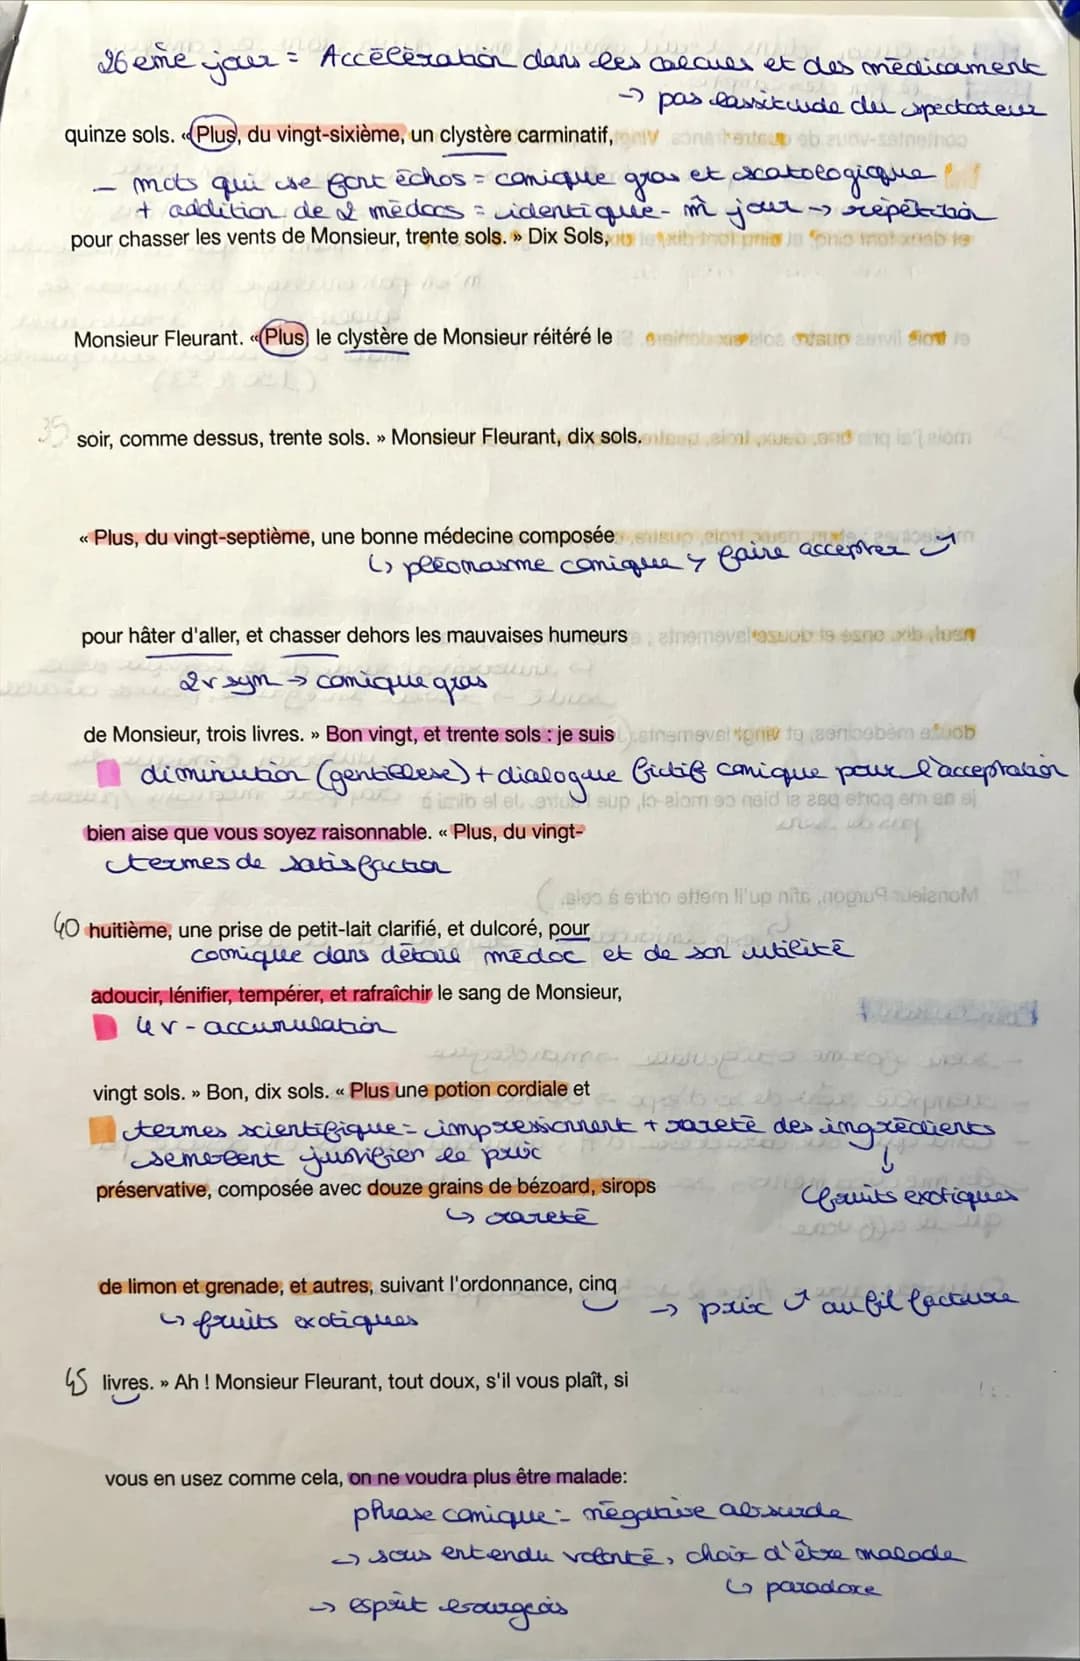 26 ème jour = Accélération dans les calculs et des médicament
→ pas lassitude du spectateur
quinze sols. « Plus, du vingt-sixième, un clystère carminatif,
- mots qui se font échos = comique gras et scatologique
+ addition de 2 médocs = identique - m̂ jour → répétition
pour chasser les vents de Monsieur, trente sols. » Dix Sols,
Monsieur Fleurant. « Plus le clystère de Monsieur réitéré le
35 soir, comme dessus, trente sols. » Monsieur Fleurant, dix sols.
« Plus, du vingt-septième, une bonne médecine composée
↳ pléonasme comique faire accepter
pour hâter d'aller, et chasser dehors les mauvaises humeurs
2 v syn → comique gras
de Monsieur, trois livres. » Bon vingt, et trente sols : je suis
diminution (gentillesse) + dialogue fictif comique pour l'acceptation
bien aise que vous soyez raisonnable. « Plus, du vingt-
termes de satisfaction
40 huitième, une prise de petit-lait clarifié, et dulcoré, pour
comique dans détail médoc et de son utilité
adoucir, lénifier, tempérer, et rafraîchir le sang de Monsieur,
4 v - accumulation
vingt sols. » Bon, dix sols. « Plus une potion cordiale et
termes scientifique = impressionnent + rareté des ingrédients
semblent justifier le prix
préservative, composée avec douze grains de bézoard, sirops
↳ rareté
fruits exotiques
de limon et grenade, et autres, suivant l'ordonnance, cinq
↳ fruits exotiques
→ prix ↗ au fil facture
45 livres. » Ah ! Monsieur Fleurant, tout doux, s'il vous plaît, si
vous en usez comme cela, on ne voudra plus être malade:
phrase comique = négative absurde
→ sous entendu volonté, choix d'être malade
↳ paradoxe
→ esprit bourgeois